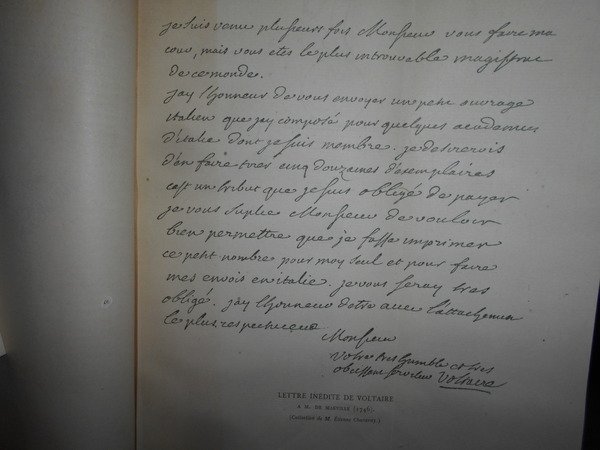 je suis venu plusieurs fois Monsieur vous faire ma
cour, mais vous etes le plus introuvable magistrat
de ce monde.
jay lhonneur de vous envoyer un petit ouvrage
italien que jay composé pour quelques academies
d'italie dont je suis membre. je desirerois
d'en faire tirer cinq douzaines d'exemplaires
cest un tribut que je suis obligé de payer
je vous suplie Monsieur de vouloir
bien permettre que je fasse imprimer
ce petit nombre pour moy seul et pour faire
mes envois en italie. je vous seray tres
obligé. jay lhonneur d'etre avec l'attachement
le plus respectueux
Monsieur
votre tres humble et tres
obeissant serviteur Voltaire
LETTRE INÉDITE DE VOLTAIRE
A M. DE MARVILLE (1746).
(Collection de M. Étienne Charavay.)